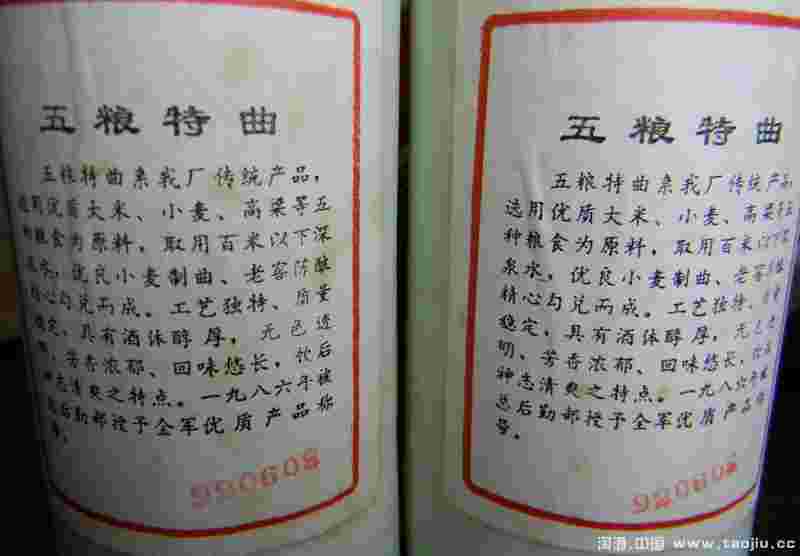 五粮特曲
五粮特曲系我厂传统产品，
选用优质大米、小麦、高梁等五
种粮食为原料，取用百米以下深
泉水，优良小麦制曲、老窖陈酿
精心勾兑而成。工艺独特、质量
稳定、具有酒体醇厚，无色透
明、芳香浓郁、回味悠长，饮后
神志清爽之特点。一九八六年被
总后勤部授予全军优质产品称
号。
990608
五粮特曲
五粮特曲系我厂传统产品，
选用优质大米、小麦、高梁等五
种粮食为原料，取用百米以下深
泉水，优良小麦制曲、老窖陈酿
精心勾兑而成。工艺独特、
稳定、具有酒体醇厚，无色透
明、芳香浓郁、回味悠长，饮后
神志清爽之特点。一九八六年被
总后勤部授予全军优质产品称
号。
920608
淘酒.中国 www.taojiu.cc